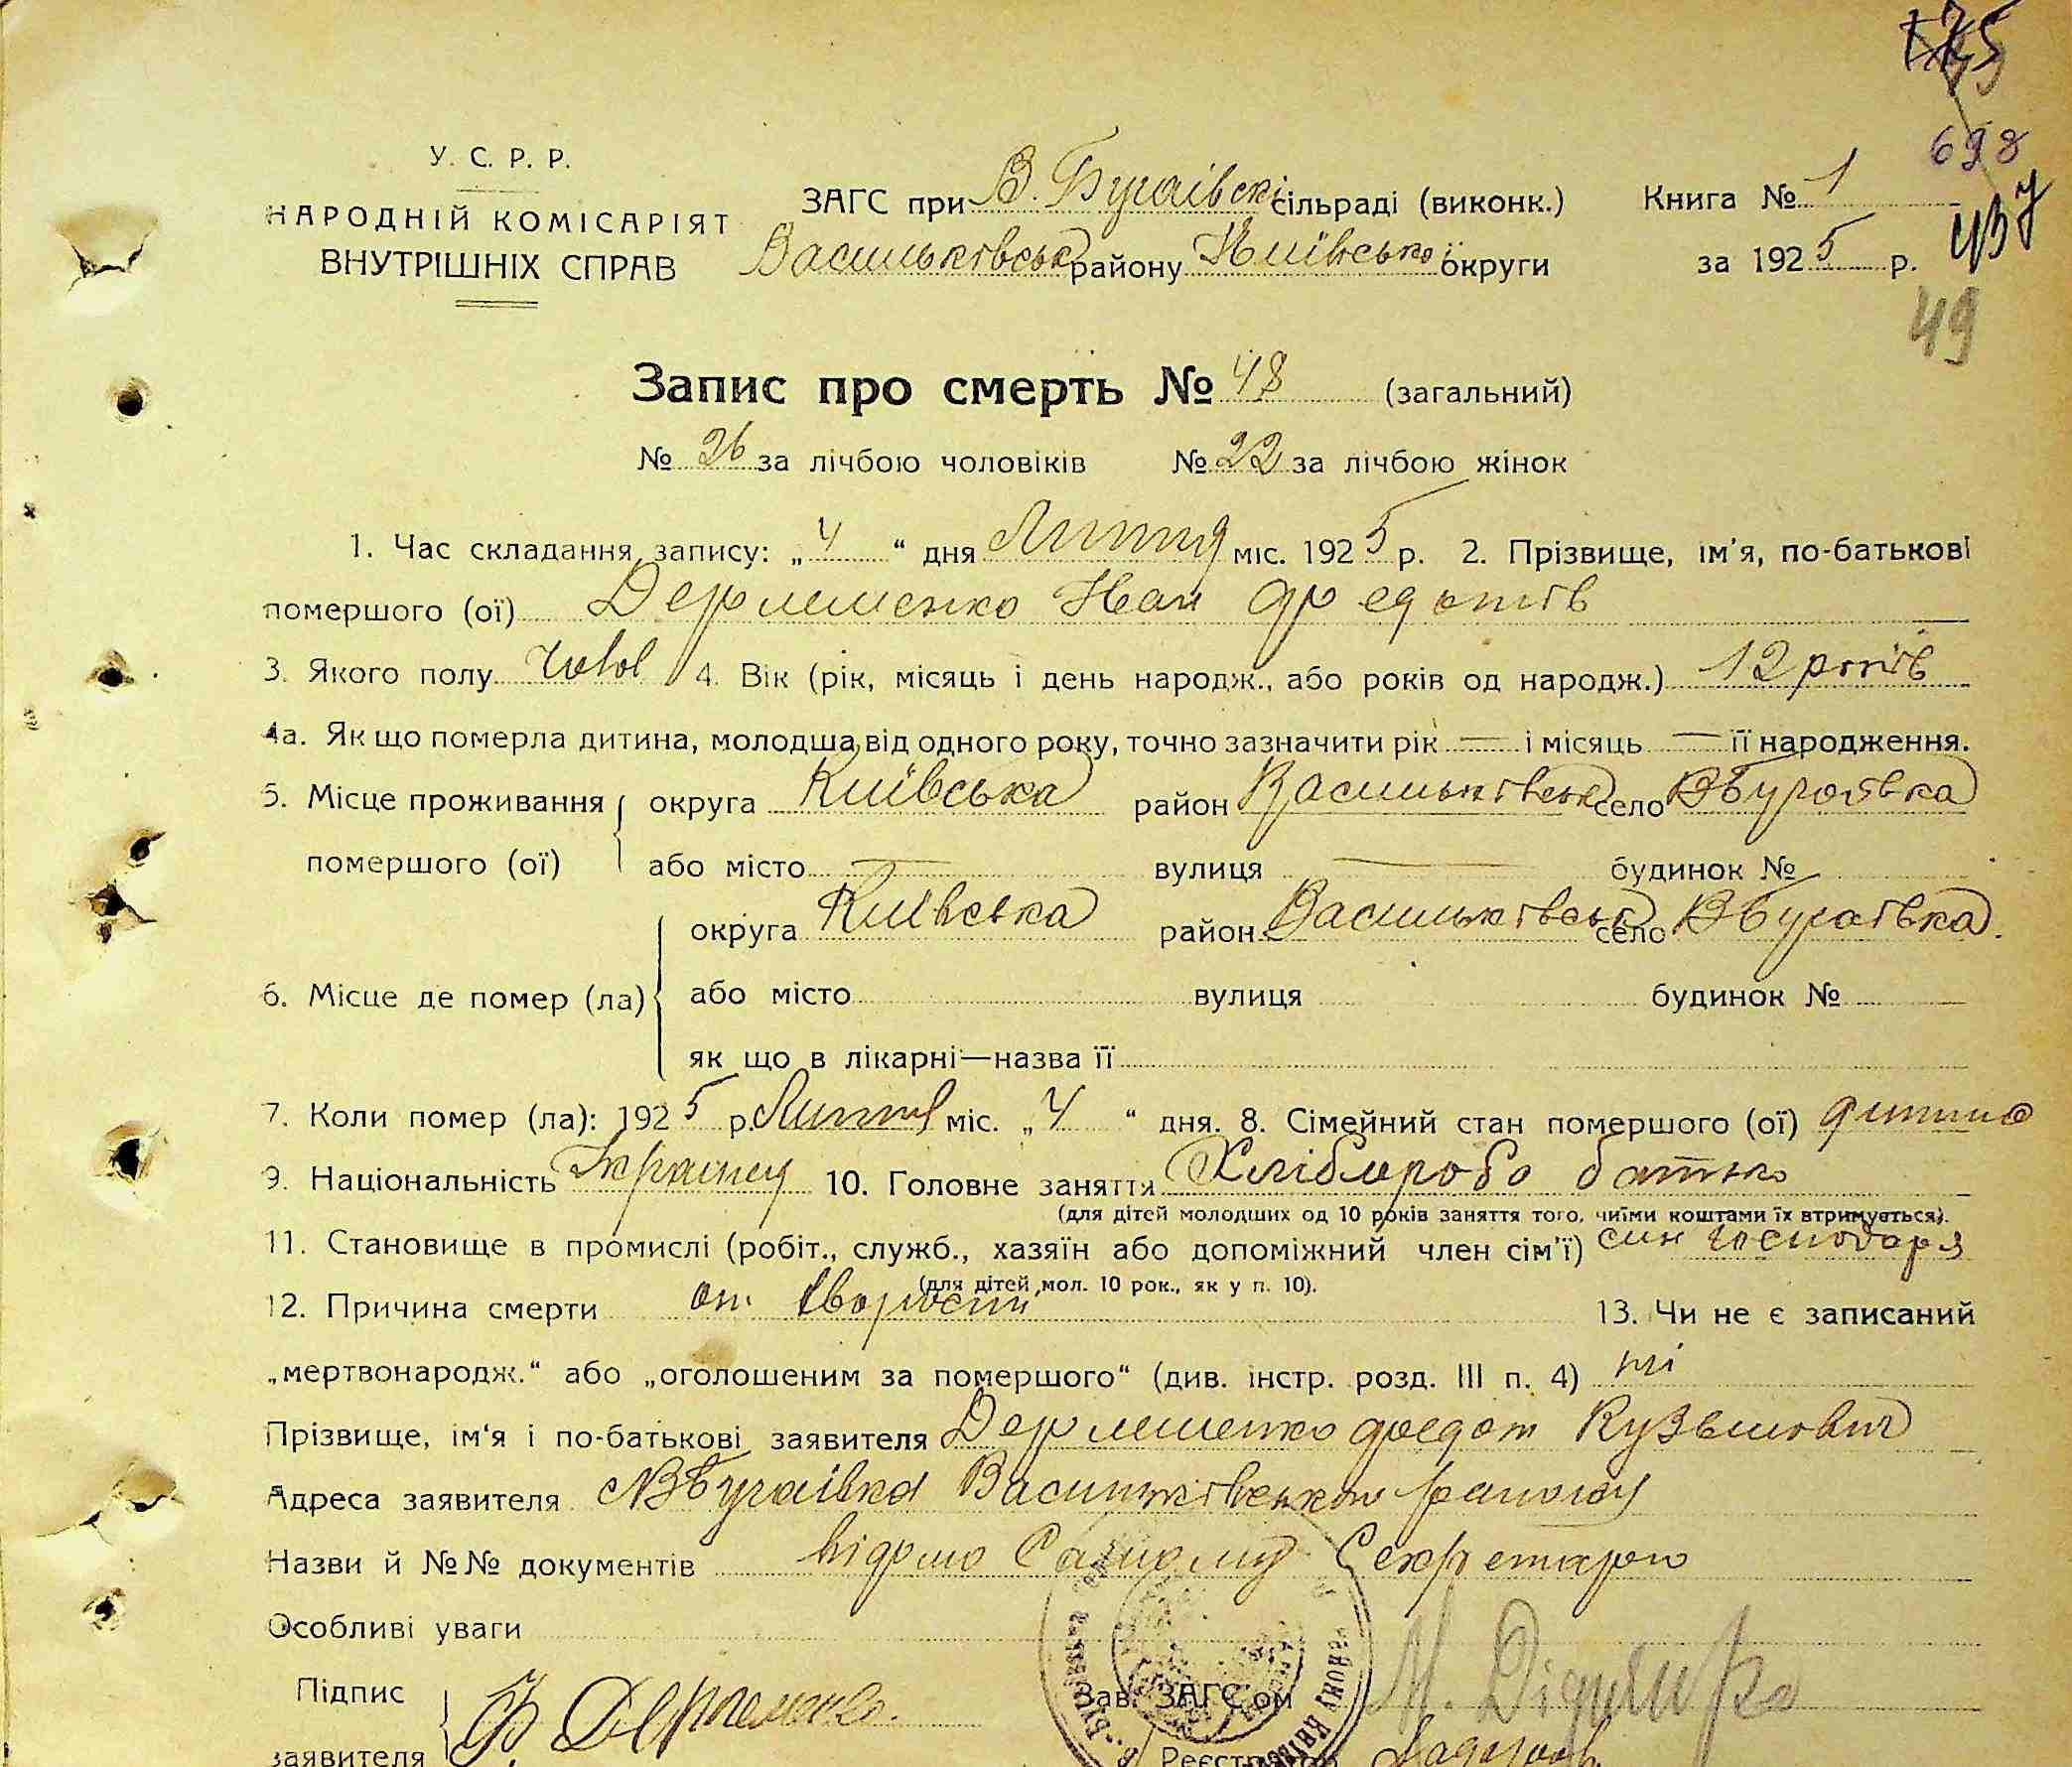 175
698
437
49
У. С. Р. Р.
НАРОДНІЙ КОМІСАРІЯТ
ВНУТРІШНІХ СПРАВ
ЗАГС при В. Бугаївскі сільраді (виконк.)
Васильківськ району Київської округи
Книга № 1
за 1925 р.
Запис про смерть № 48 (загальний)
№ 26 за лічбою чоловіків № 22 за лічбою жінок
1. Час складання запису: „4“ дня Липня міс. 1925 р. 2. Прізвище, ім'я, по-батькові
помершого (ої) Дермеменко Иван Федотів
3. Якого полу чолов 4. Вік (рік, місяць і день народж., або років од народж.) 12 років
4а. Як що померла дитина, молодша від одного року, точно зазначити рік — і місяць — її народження.
5. Місце проживання округа Київська район Васильківськ село ВБугаївка
помершого (ої) або місто — вулиця — будинок №
округа Київська район Васильківськ село ВБугаївка.
6. Місце де помер (ла) або місто вулиця будинок №
як що в лікарні—назва її
7. Коли помер (ла): 1925 р. Липня міс. „4“ дня. 8. Сімейний стан помершого (ої) дитина
9. Національність Украинец 10. Головне заняття Хлібороб батько
(для дітей молодших од 10 років заняття того, чиїми коштами їх втримується).
11. Становище в промислі (робіт., служб., хазяїн або допоміжний член сім'ї) син господаря
(для дітей мол. 10 рок., як у п. 10).
12. Причина смерти от 13. Чи не є записаний
„мертвонародж.“ або „оголошеним за помершого“ (див. інстр. розд. III п. 4) ні
Прізвище, ім'я і по-батькові заявителя Федот Кузьмович
Адреса заявителя ВБугаївка Васильківського району
Назви й №№ документів відомо Самому Секретарю
Особливі уваги
Підпис
заявителя
Зав. ЗАГС'ом
Реєстратор